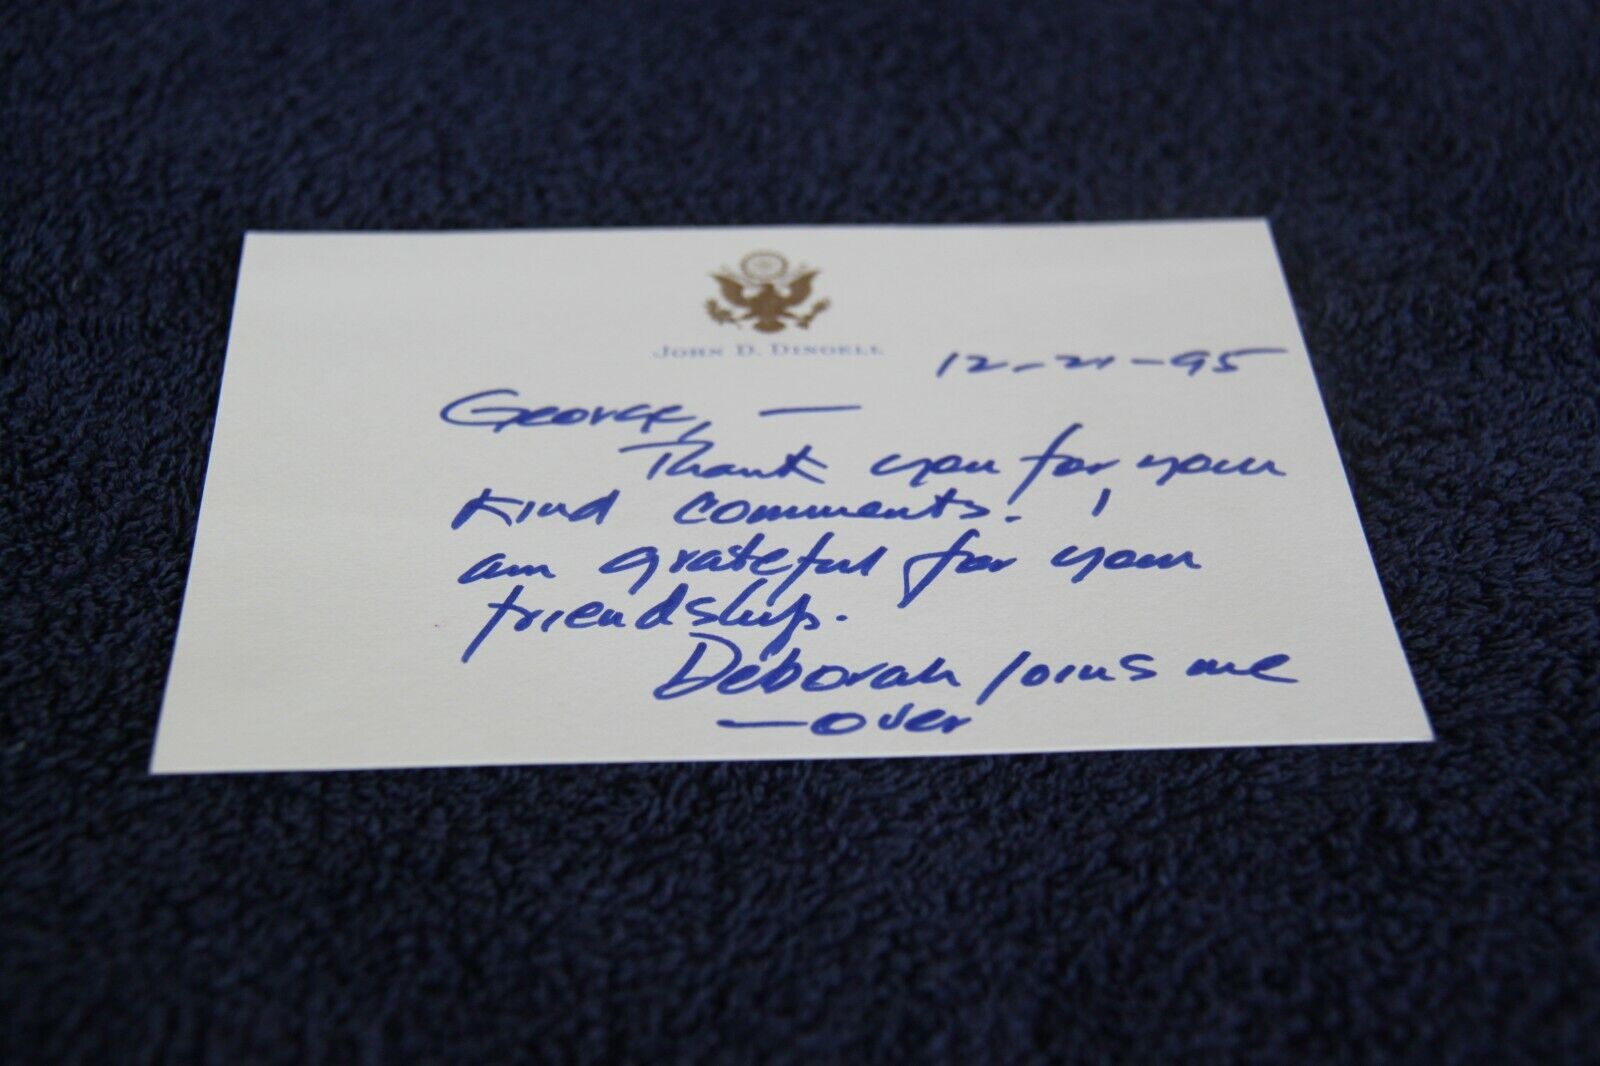 JOHN D. DINGELL
12-21-95
George, —
Thank you for your
kind comments. I
am grateful for your
friendship.
Deborah joins me
— over